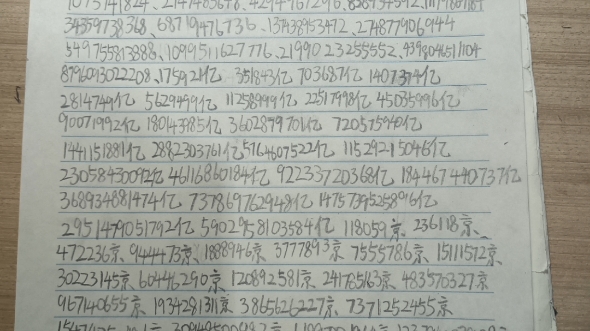 1073741824、2147483648、4294967296、8589934592、17179869184
34359738368、68719476736、137438953472、274877906944
549755813888、1099511627776、2199023255552、4398046511104
8796093022208、175921亿 351843亿 703687亿 1407374亿
2814749亿 5629499亿 11258999亿 22517998亿 45035996亿
90071992亿 180143985亿 360287970亿 720575940亿
1441151881亿 2882303761亿 5764607522亿 11529215046亿
23058430092亿 46116860184亿 92233720368亿 184467440737亿
368934881474亿 737869762948亿 1475739525896亿
2951479051792亿 5902958103584亿 118059京、236118京、
472236京、944473京、1888946京、3777893京、7555786京、15111572京、
30223145京、60446290京、120892581京、241785163京、483570327京
967140655京、1934281311京、3865626227京、7371252455京